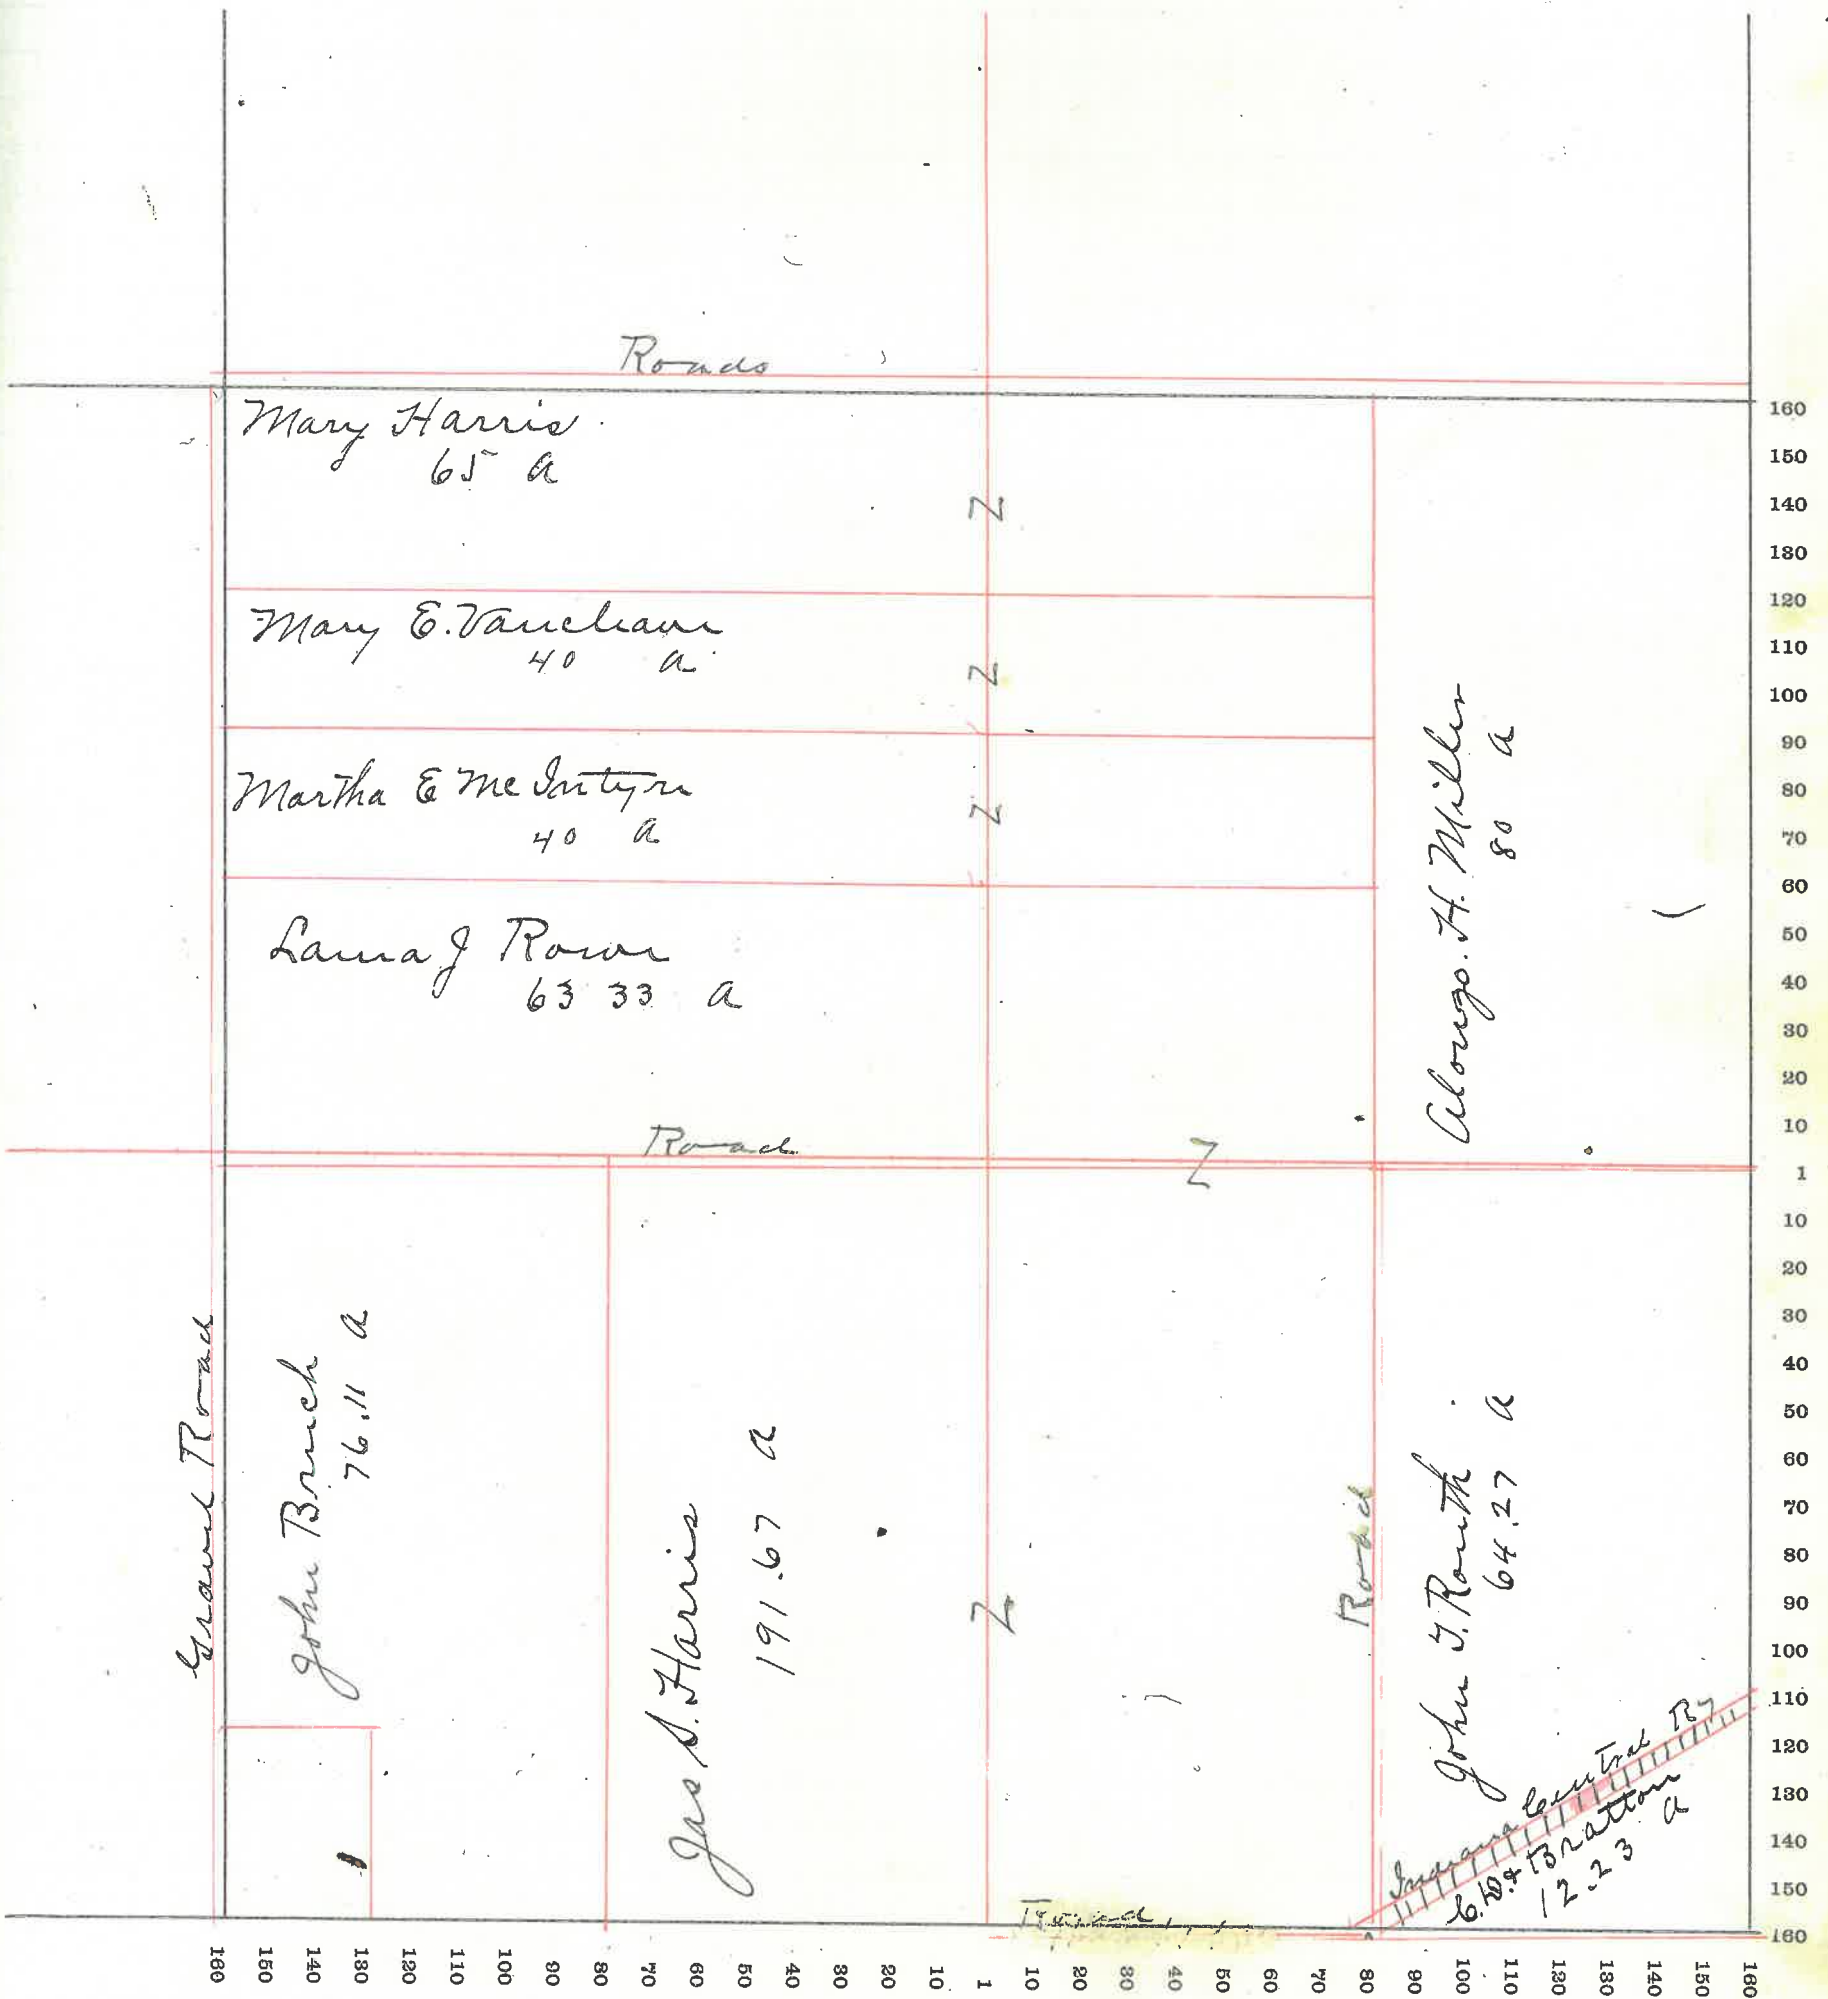 Roads
Mary Harris
65 a
Mary E.
40 a
Martha E McIntyre
40 a
Laura J Rowe
63 33 a
Alonzo. H. Miller
80 a
Road
Gravel Road
John
76.11 a
Jas S. Harris
191.67 a
Road
John T. Routh
64.27 a
Indiana Central Ry
Bratton
12.23 a
Road
160
150
140
130
120
110
100
90
80
70
60
50
40
30
20
10
1
10
20
30
40
50
60
70
80
90
100
110
120
130
140
150
160
160 150 140 130 120 110 100 90 80 70 60 50 40 30 20 10 1 10 20 30 40 50 60 70 80 90 100 110 120 130 140 150 160